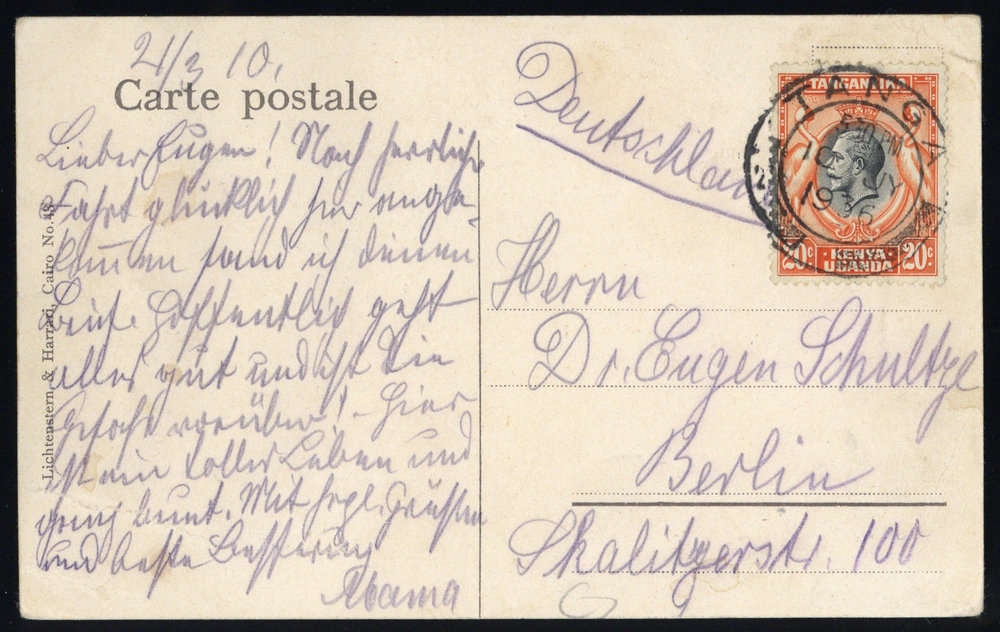 21/3 10.
Carte postale
Lieber Eugen! Nach herrlicher
Fahrt glücklich hier ange-
kommen fand ich deinen
Brief. Hoffentlich geht
alles gut und ist die
Gefahr vorüber! – Hier
ist ein tolles Leben und
ganz bunt. Mit herzl. Grüssen
und beste Besserung
Lichtenstern & Harrari, Cairo No. 48
Deutschland
TANGANYIKA
TANGA
1936
20c KENYA UGANDA 20c
Herrn
Dr. Eugen Schultze
Berlin
Skalitzerstr. 100